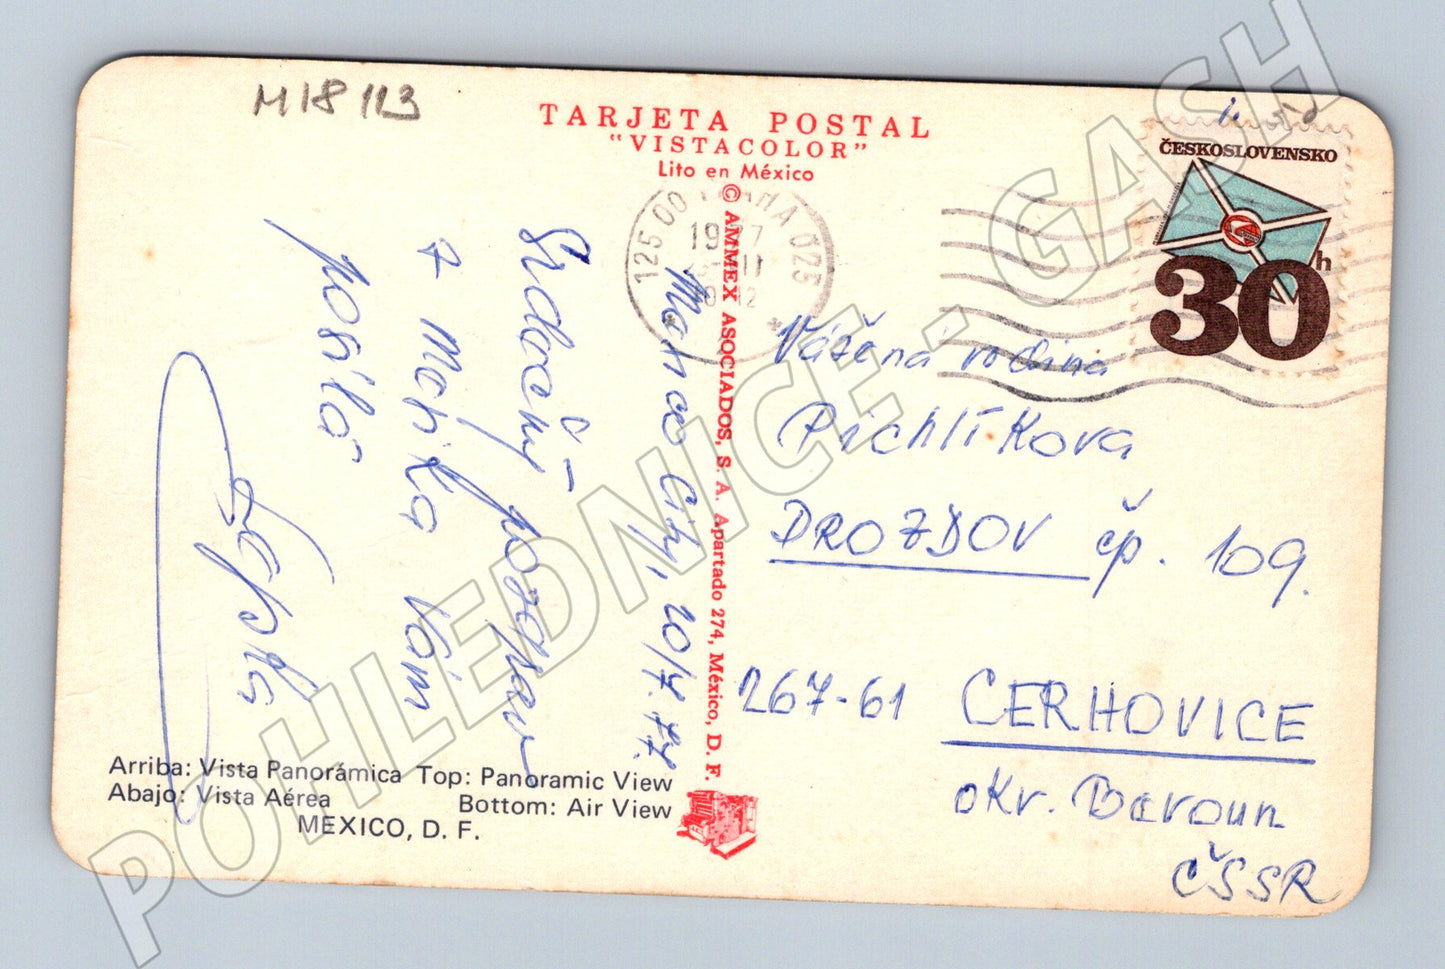 M18 113
TARJETA POSTAL
"VISTACOLOR"
Lito en México
© AMMEX ASOCIADOS, S. A. Apartado 274, México, D. F.
125 00 PRAHA 025
1977
ČESKOSLOVENSKO
30h
Mexico City, 20/7.77.
Srdečný pozdrav
z Mexika Vám
posílá
Vážená rodina
Pichlíkova
DROZDOV čp. 109.
267-61 CERHOVICE
okr. Beroun
ČSSR
Arriba: Vista Panorámica Top: Panoramic View
Abajo: Vista Aérea Bottom: Air View
MEXICO, D. F.
POHLEDNICE - GASH